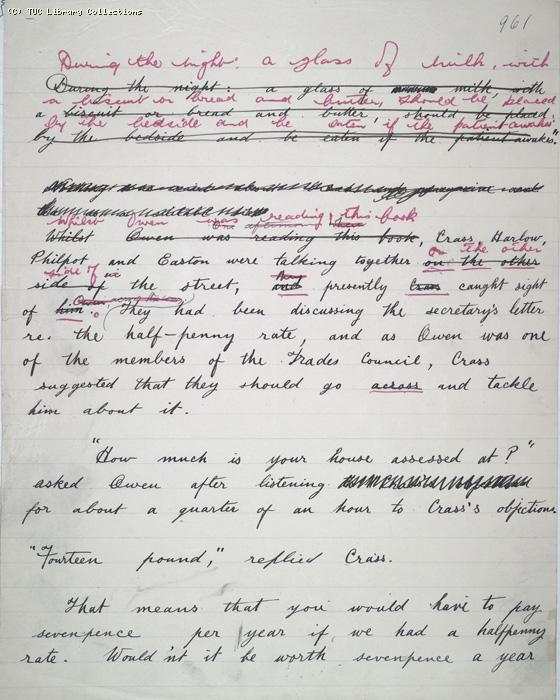 (C) TUC Library Collections
961
During the night: a glass of milk, with
During the night: a glass of milk, with
a biscuit or bread and butter, should be placed
a biscuit or bread and butter, should be placed
by the bedside and be eaten if the patient awakes.
by the bedside and be eaten if the patient awakes."
Whilst Owen was reading this book
One afternoon
Whilst Owen was reading this book, Crass Harlow,
on the other
Philpot and Easton were talking together on the other
side of
side of the street, and presently Crass caught sight
of him. They had been discussing the secretary's letter
re. the half-penny rate, and as Owen was one
of the members of the Trades Council, Crass
suggested that they should go across and tackle
him about it.
"How much is your house assessed at?"
asked Owen after listening
for about a quarter of an hour to Crass's objections.
"Fourteen pound," replied Crass.
That means that you would have to pay
sevenpence per year if we had a halfpenny
rate. Would'nt it be worth sevenpence a year